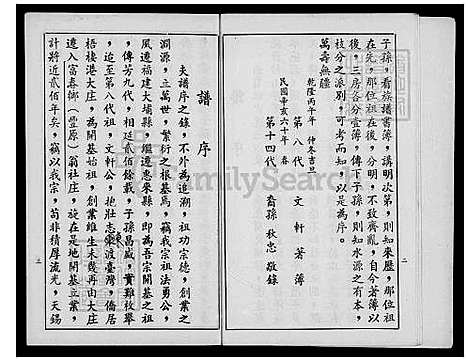 子孫、看族譜書簿、講明次第、則知來歷、那位祖
在先、那位祖在後、分明、不致齊亂、自今著簿以
後、三房各分壹簿、傳下子孫、則知水源之有本、
枝分之派別、可考而知、以是為序。
萬壽無疆
乾隆丙午年 仲冬吉旦
第八代 文軒 著簿
民國辛亥六十年 春
第十四代 裔孫 秋忠 敬錄
二
譜序
夫譜序之錄、不外為追溯、祖功宗德、創業之
淵源、立萬世、繁衍之根基焉、竊我宗祖法勇公、
風邁福建大埔縣、繼遷惠來縣、即為吾宗開基之祖
、傳芳九代、相延貳佰餘載、子孫昌盛、實難枚舉
、迨至第八代祖、文軒公、抱壯志東渡臺灣、僑居
梧棲港大庄、為開基始祖、創業維生未幾再由大庄
遷入富春鄉（豐原）翁社庄、旋在是地開基立業、
計將近貳佰年矣、竊以我宗、苟非積厚流光、天錫
三
FamilySearch